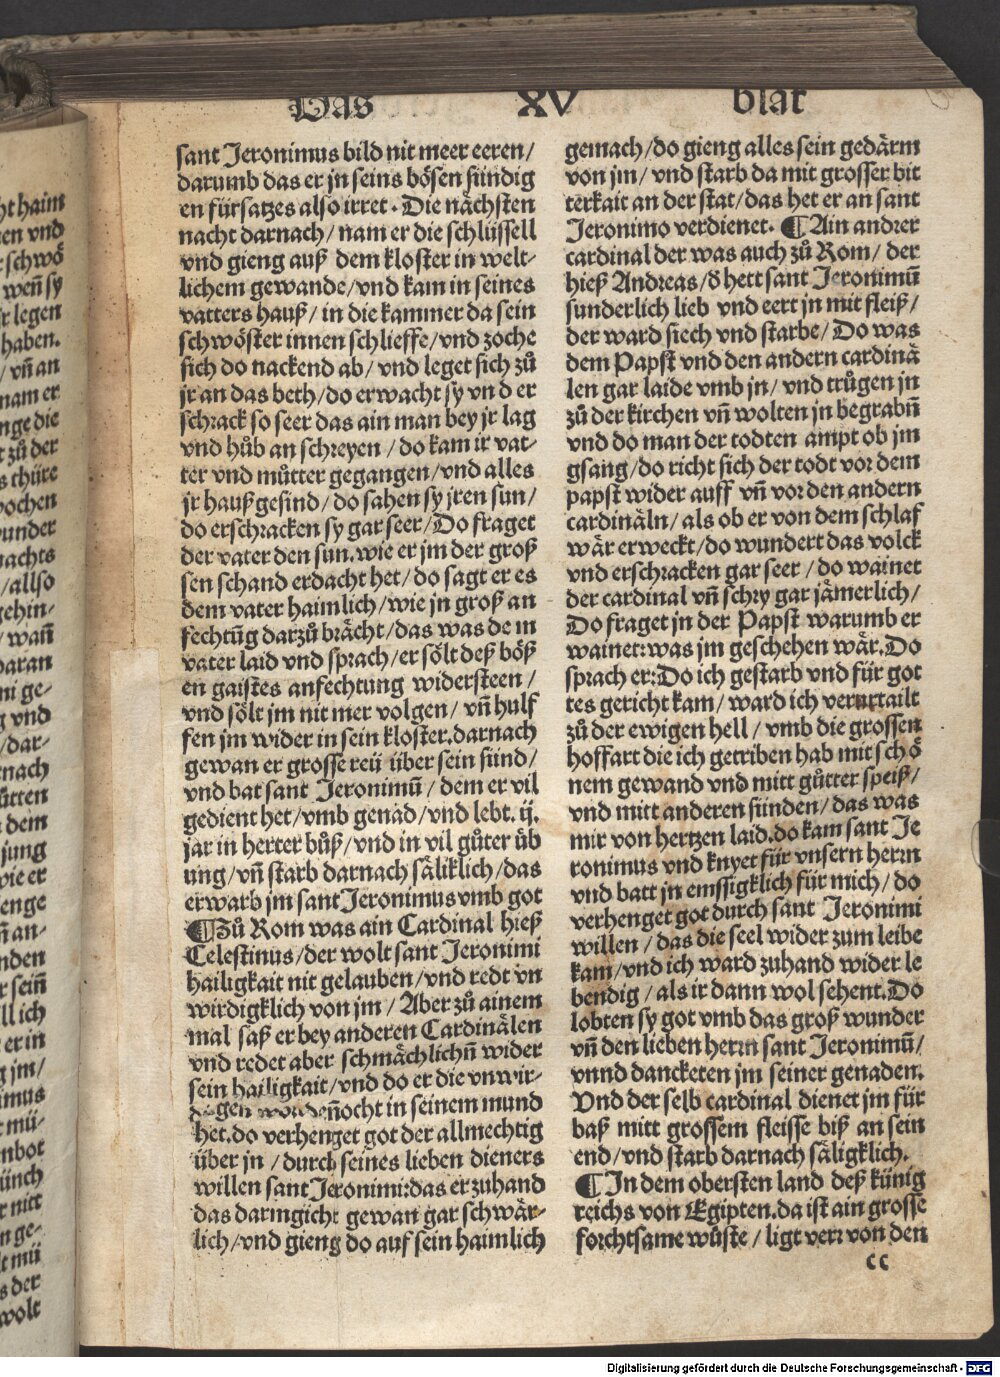 Das XV blat
sant Jeronimus bild nit meer eeren/
darumb das er jn seins bösen sündig
en fürsatzes also irret. Die nächsten
nacht darnach/ nam er die schlüssell
vnd gieng auß dem kloster in welt-
lichem gewande/vnd kam in seines
vatters hauß/ in die kammer da sein
schwöster innen schlieffe/vnd zoche
sich do nackend ab/ vnd leget sich zů
jr an das beth/do erwacht sy vnd er
schrack so seer das ain man bey jr lag
vnd hůb an schreyen/ do kam ir vat-
ter vnd můtter gegangen/vnd alles
jr haußgesind/do sahen sy jren sun/
do erschracken sy gar seer/Do fraget
der vater den sun. wie er jm der groß
sen schand erdacht het/do sagt er es
dem vater haimlich/wie jn groß an
fechtūg darzů brächt/das was dem
vater laid vnd sprach/er sölt deß böß
en gaistes anfechtung widersteen/
vnd sölt jm nit mer volgen/ vñ hulf
fen jm wider in sein kloster. darnach
gewan er grosse reü über sein sünd/
vnd bat sant Jeronimū/ dem er vil
gedient het/vmb genad/vnd lebt. ij.
jar in herter bůß/vnd in vil gůter üb
ung/vñ starb darnach säliklich/das
erwarb jm sant Jeronimus vmb got
¶Zů Rom was ain Cardinal hieß
Celestinus/der wolt sant Jeronimi
hailigkait nit gelauben/vnd redt vn
wirdigklich von jm/ Aber zů ainem
mal saß er bey anderen Cardinälen
vnd redet aber schmächlichñ wider
sein hailigkait/vnd do er die vnwir-
digen wort dēnocht in seinem mund
het. do verhenget got der allmechtig
über jn/durch seines lieben dieners
willen sant Jeronimi: das er zuhand
das darmgicht gewan gar schwär-
lich/vnd gieng do auf sein haimlich
gemach/do gieng alles sein gedärm
von jm/ vnd starb da mit grosser bit
terkait an der stat/das het er an sant
Jeronimo verdienet. ¶Ain andrer
cardinal der was auch zů Rom/ der
hieß Andreas/ď hett sant Jeronimū
sunderlich lieb vnd eert jn mit fleiß/
der ward siech vnd starbe/Do was
dem Papst vnd den andern cardinā
len gar laide vmb jn/vnd trůgen jn
zů der kirchen vñ wolten jn begrabñ
vnd do man der todten ampt ob jm
gsang/do richt sich der todt vor dem
papst wider auff vñ vor den andern
cardinäln/als ob er von dem schlaf
wär erweckt/do wundert das volck
vnd erschracken gar seer/do wainet
der cardinal vñ schry gar jämerlich/
Do fraget jn der Papst warumb er
wainet: was jm geschehen wär. Do
sprach er: Do ich gestarb vnd für got
tes gericht kam/ ward ich verurtailt
zů der ewigen hell/ vmb die grossen
hoffart die ich getriben hab mit schö
nem gewand vnd mitt gůtter speiß/
vnd mitt anderen sünden/das was
mir von hertzen laid. do kam sant Je
ronimus vnd knyet für vnsern herrn
vnd batt jn emssigklich für mich/do
verhenget got durch sant Jeronimi
willen/das die seel wider zum leibe
kam/vnd ich ward zuhand wider le
bendig/als ir dann wol sehent. Do
lobten sy got vmb das groß wunder
vñ den lieben herrn sant Jeronimū/
vnnd dancketen jm seiner genaden.
Vnd der selb cardinal dienet jm für
baß mitt grossem fleisse biß an sein
end/vnd starb darnach säligklich.
¶In dem obersten land deß künig
reichs von Egipten. da ist ain grosse
forchtsame wůste/ligt verr von den
cc
Digitalisierung gefördert durch die Deutsche Forschungsgemeinschaft - DFG